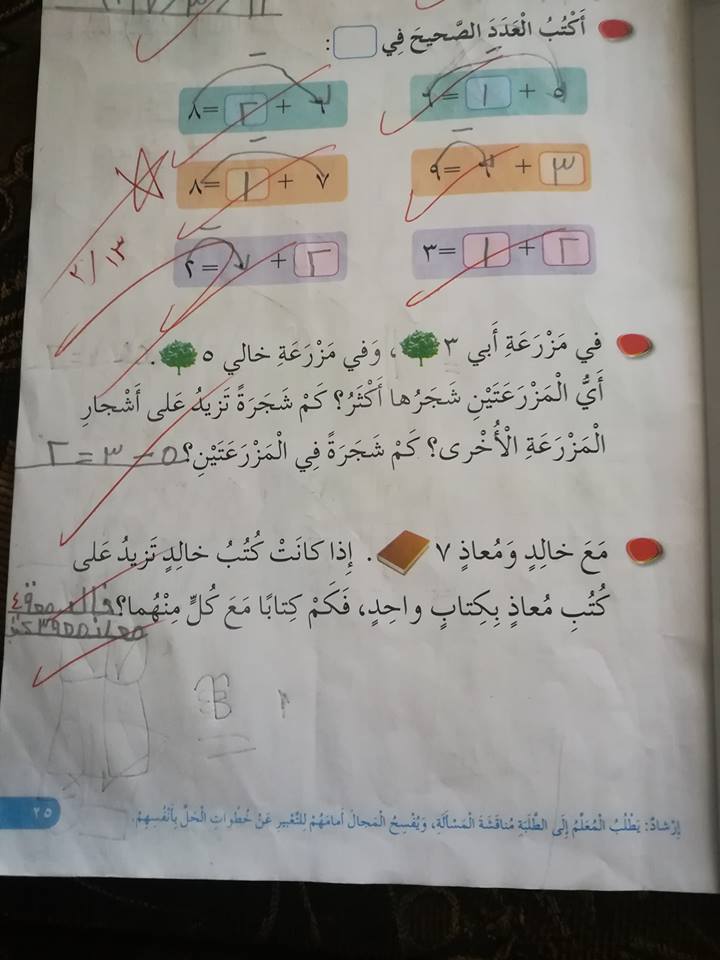 أَكْتُبُ الْعَدَدَ الصَّحيحَ فِي :
٥ + ١ = ٦
٦ + ٢ = ٨
٣ + ٦ = ٩
٧ + ١ = ٨
٢ + ١ = ٣
٢ + = ٢
٢/١٣
في مَزْرَعَةِ أَبي ٣ ، وَفي مَزْرَعَةِ خالي ٥ .
أَيُّ الْمَزْرَعَتَيْنِ شَجَرُها أَكْثَرُ؟ كَمْ شَجَرَةً تَزيدُ عَلى أَشْجارِ
الْمَزْرَعَةِ الْأُخْرى؟ كَمْ شَجَرَةً فِي الْمَزْرَعَتَيْنِ؟ ٥ - ٣ = ٢
مَعَ خالِدٍ وَمُعاذٍ ٧ . إِذا كانَتْ كُتُبُ خالِدٍ تَزيدُ عَلى
كُتُبِ مُعاذٍ بِكِتابٍ واحِدٍ، فَكَمْ كِتابًا مَعَ كُلٍّ مِنْهُما؟ خالد معه ٤
معاذ معه ٣ كتب
إِرْشادٌ: يَطْلُبُ الْمُعَلِّمُ إِلَى الطَّلَبَةِ مُناقَشَةَ الْمَسْأَلَةِ، وَيُفْسِحُ الْمَجالَ أَمامَهُمْ لِلتَّعْبيرِ عَنْ خُطُواتِ الْحَلِّ بِأَنْفُسِهِمْ.
٢٥